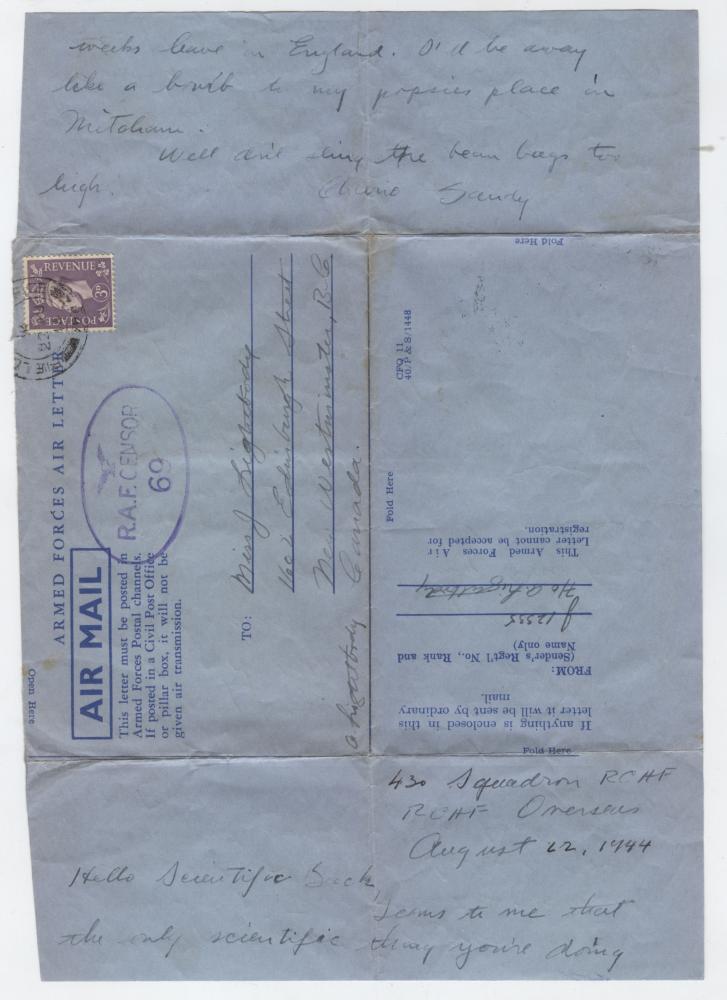 weeks leave in England. I'd be away
like a bomb to my popsies place in
Mitcham.
Well don't sling the bean bags too
high. Sandy
Fold Here
REVENUE
3D
POSTAGE
22
ARMED FORCES AIR LETTER
R.A.F. CENSOR
69
AIR MAIL
This letter must be posted in
Armed Forces Postal channels.
If posted in a Civil Post Office
or pillar box, it will not be
given air transmission.
Open Here
TO:
Miss J Lightbody
1602 Edinburgh Street
New Westminster, B.C.
Canada.
A Lightbody
CFQ 11
40/P & S/1448
Fold Here
This Armed Forces Air
Letter cannot be accepted for
registration.
FROM:
(Sender's Regt'l No., Rank and
Name only)
J 12555
F/O A Lightbody
If anything is enclosed in this
letter it will be sent by ordinary
mail.
Fold Here
430 Squadron RCAF
RCAF Overseas
August 22, 1944
Hello Scientific Sack,
Seems to me that
the only scientific thing you're doing